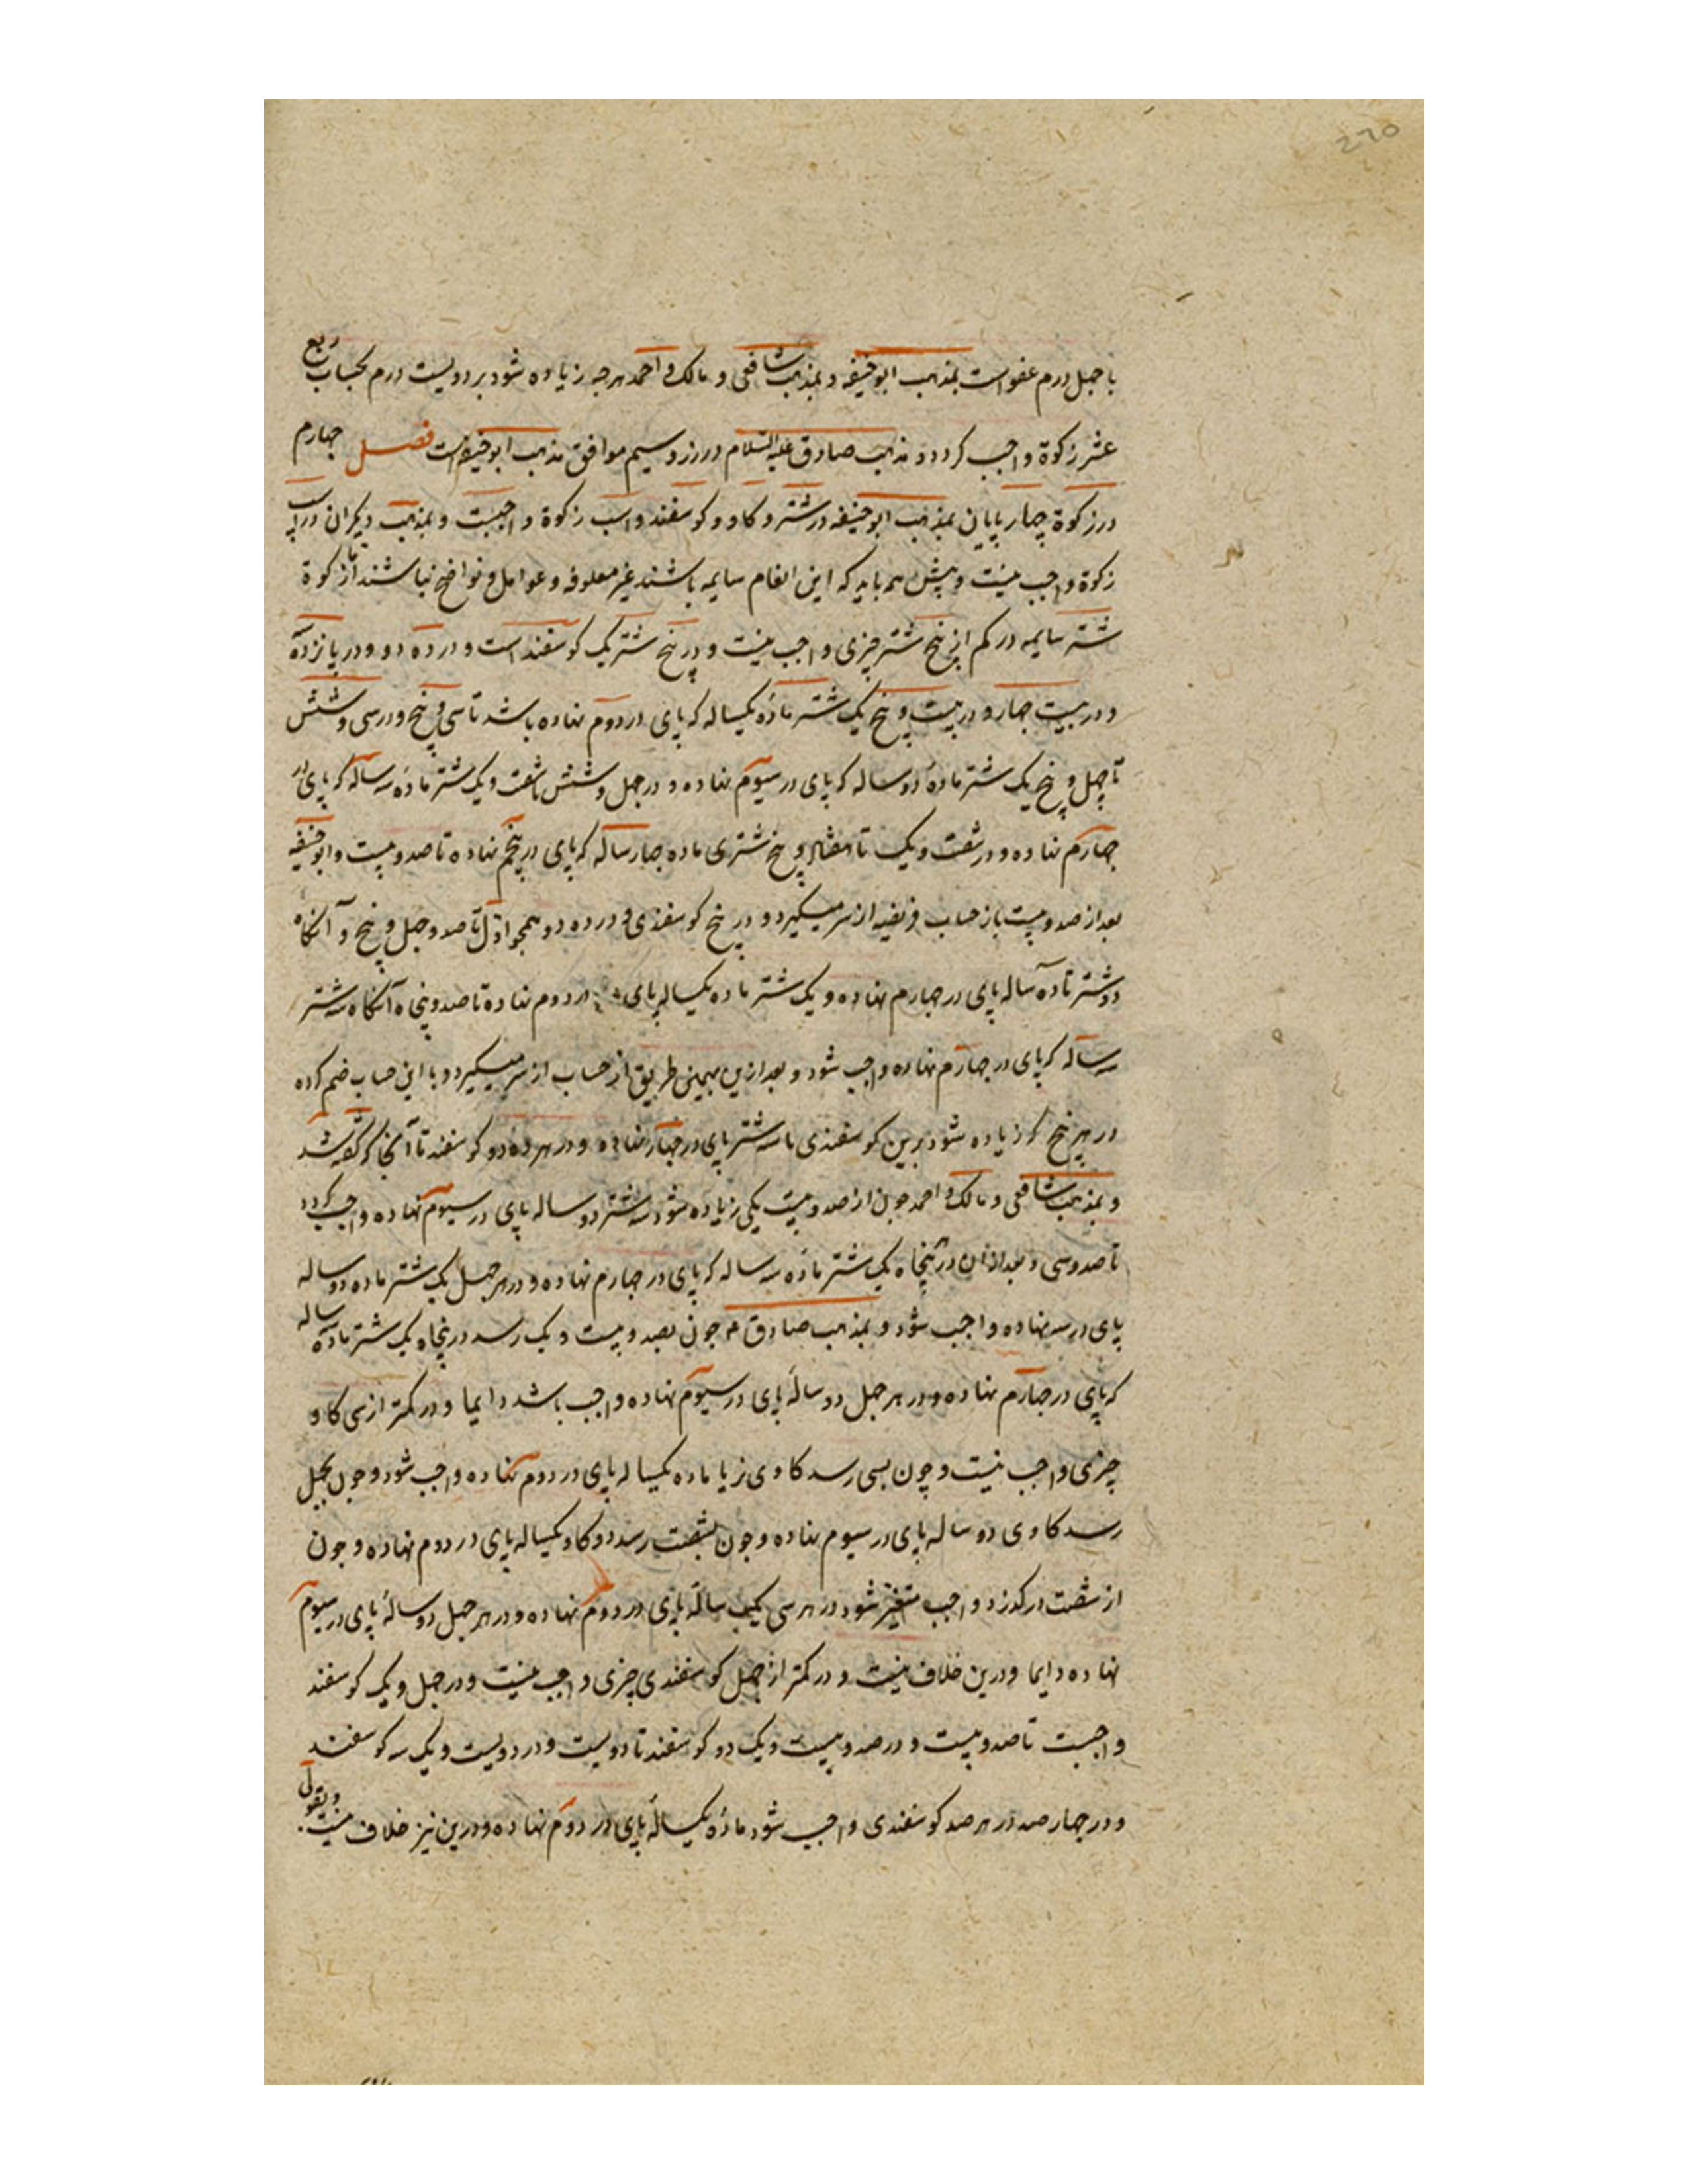 ۲۶۵
با چهل درم عفو است بمذهب ابوحنیفه و بمذهب شافعی و مالک و احمد هرچه زیاده شود بر دویست درم بحساب ربع
عشر زکوة واجب کردد و مذهب صادق علیه السلام در زر و سیم موافق مذهب ابوحنیفه است فصل چهارم
در زکوة چهارپایان بمذهب ابوحنیفه در شتر و کاو و کوسفند و اسب زکوة واجبست و بمذهب دیکران در اسب
زکوة واجب نیست و پیش همه باید که این انعام سایمه باشند غیر معلوفه و عوامل و نواضح نباشند اما زکوة
شتر سایمه در کم از پنج شتر چیزی واجب نیست و در پنج شتر یک کوسفند است و در ده دو و در پانزده
و در بیست چهار و در بیست و پنج یک شتر مادهٔ یکساله که پای در دوم نهاده باشد تا سی و پنج و در سی و شش
تا چهل و پنج یک شتر مادهٔ دو ساله که پای در سیوم نهاده و در چهل و شش تا شصت و یک شتر مادهٔ سه ساله که پای در
چهارم نهاده و در شصت و یک تا هفتاد و پنج شتری ماده چهار ساله که پای در پنجم نهاده تا صد و بیست و ابوحنیفه
بعد از صد و بیست باز حساب فریضه از سر میکیرد و در پنج کوسفندی و در ده دو همچو اول تا صد و چهل و پنج و آنکاه
دو شتر ماده سه ساله پای در چهارم نهاده و یک شتر ماده یکساله پای در دوم نهاده تا صد و پنجاه آنکاه سه شتر
سه ساله که پای در چهارم نهاده واجب شود و بعد ازین بهمین طریق از حساب از سر میکیرد و با این حساب ضم کرده
در هر پنج که زیاده شود برین کوسفندی با سه شتر پای در چهارم نهاده و در هر ده دو کوسفند تا آنجا که گفته شد
و بمذهب شافعی و مالک و احمد چون از صد و بیست یکی زیاده شود سه شتر دو ساله پای در سیوم نهاده واجب کردد
تا صد و سی و بعد از آن در پنجاه یک شتر مادهٔ سه ساله که پای در چهارم نهاده و در هر چهل یک شتر ماده دو ساله
پای در سه نهاده واجب شود و بمذهب صادق ع چون بصد و بیست و یک رسد در پنجاه یک شتر ماده سه ساله
که پای در چهارم نهاده و در هر چهل دو سالهٔ پای در سیوم نهاده واجب باشد دایما و در کمتر از سی کاو
چیزی واجب نیست و چون بسی رسد کاوی نر یا ماده یکساله پای در دوم نهاده واجب شود و چون بچهل
رسد کاوی دو ساله پای در سیوم نهاده و چون بشصت رسد دو کاو یکساله پای در دوم نهاده و چون
از شصت در کذرد واجب متغیر شود در هر سی یک سالهٔ پای در دوم نهاده و در هر چهل دو سالهٔ پای در سیوم
نهاده دایما و درین خلاف نیست و در کمتر از چهل کوسفندی چیزی واجب نیست و در چهل و یک کوسفند
واجبست تا صد و بیست و در صد و بیست و یک دو کوسفند تا دویست و در دویست و یک سه کوسفند
و در چهار صد در هر صد کوسفندی واجب شود مادهٔ یکسالهٔ پای در دوم نهاده و درین نیز خلاف نیست و بقول